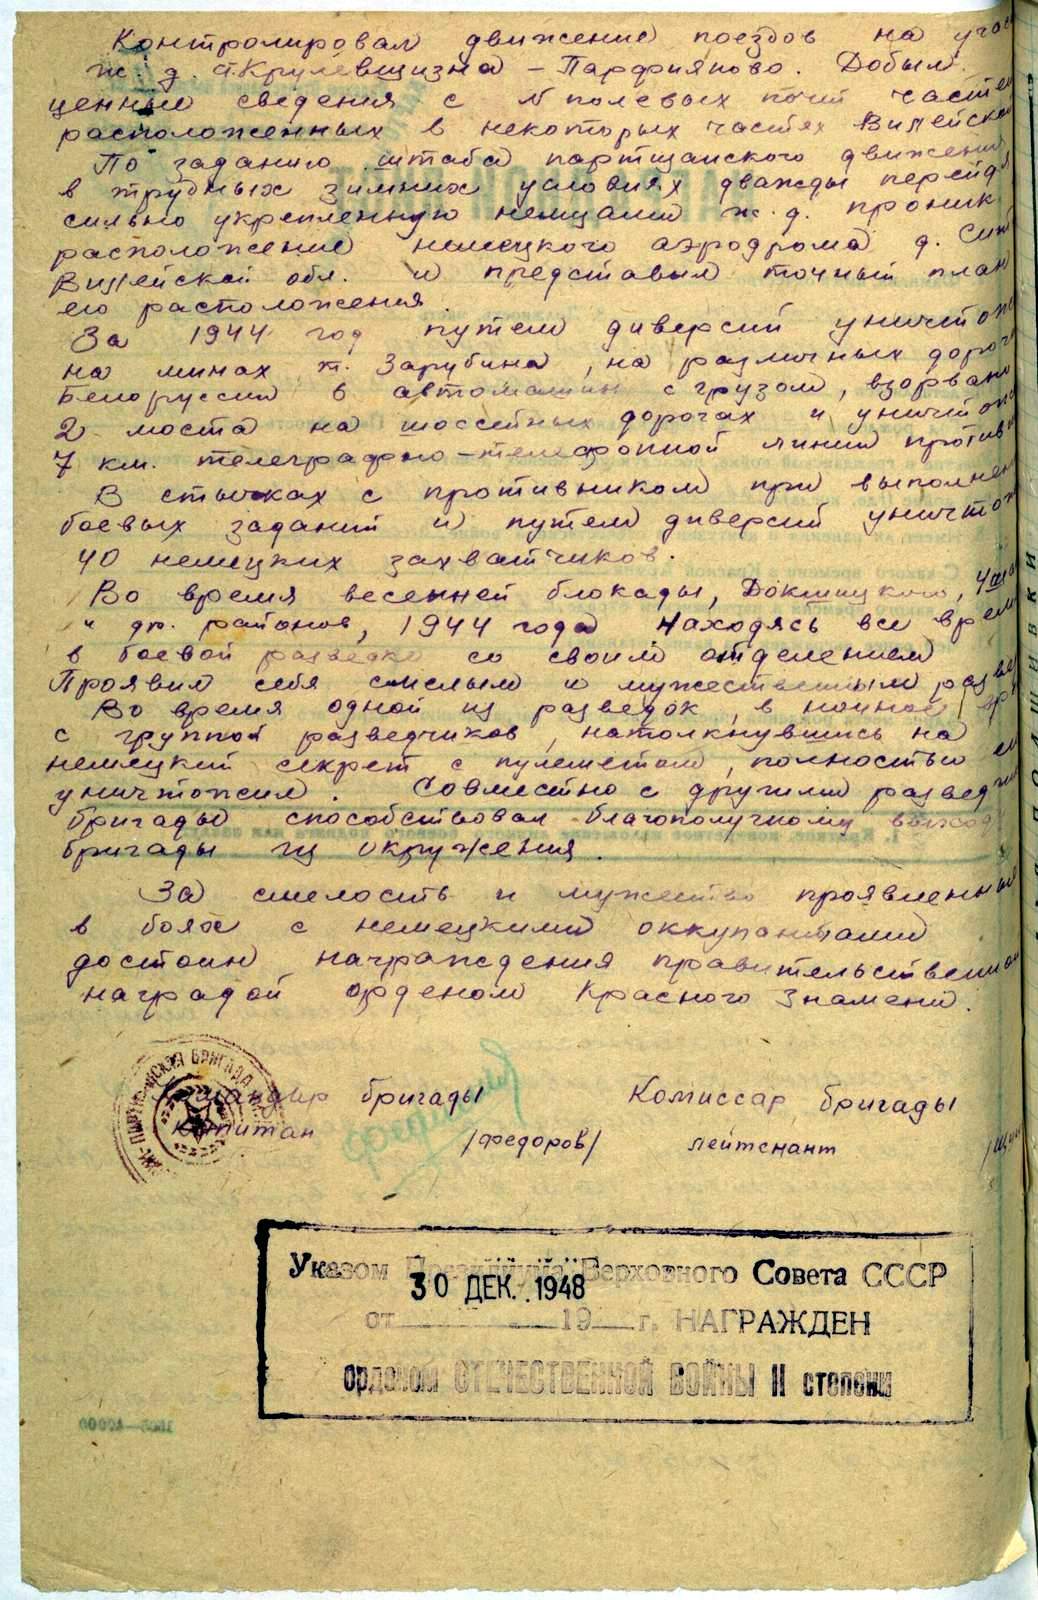 Контролировал движение поездов на учас
ж. д. ст. Крулевщизна – Парафияново. Добыл
ценные сведения с № полевых почт частей
расположенных в некоторых частях Вилейской
По заданию штаба партизанского движения
в трудных зимних условиях дважды перейдя
сильно укрепленную немцами ж. д. проник
расположение немецкого аэродрома д.
Вилейской обл. и представил точный план
его расположения.
За 1944 год путем диверсий уничтож
на минах т. Зарубина, на различных дорогах
Белоруссии 6 автомашин с грузом, взорвано
2 моста на шоссейных дорогах и уничтож
7 км. телеграфно-телефонной линии против
В стычках с противником при выполнен
боевых заданий и путем диверсий уничтож
40 немецких захватчиков.
Во время весенней блокады, Докшицкого, Уша
и др. районов, 1944 года находясь все время
в боевой разведке со своим отделением
Проявил себя смелым и мужественным разве
Во время одной из разведок, в ночное вре
с группой разведчиков, натолкнувшись на
немецкий секрет с пулеметом, полностью ег
уничтожил. Совместно с другими разведчик
бригады способствовал благополучному выходу
бригады из окружения.
За смелость и мужество проявленные
в боях с немецкими оккупантами
достоин награждения правительственной
наградой орденом Красного Знамени.
ПАРТИЗАНСКАЯ БРИГАДА
Командир бригады Комиссар бригады
капитан /Федоров/ лейтенант
Указом Президиума Верховного Совета СССР
30 ДЕК. 1948
от 19 г. НАГРАЖДЕН
орденом ОТЕЧЕСТВЕННОЙ ВОЙНЫ II степени